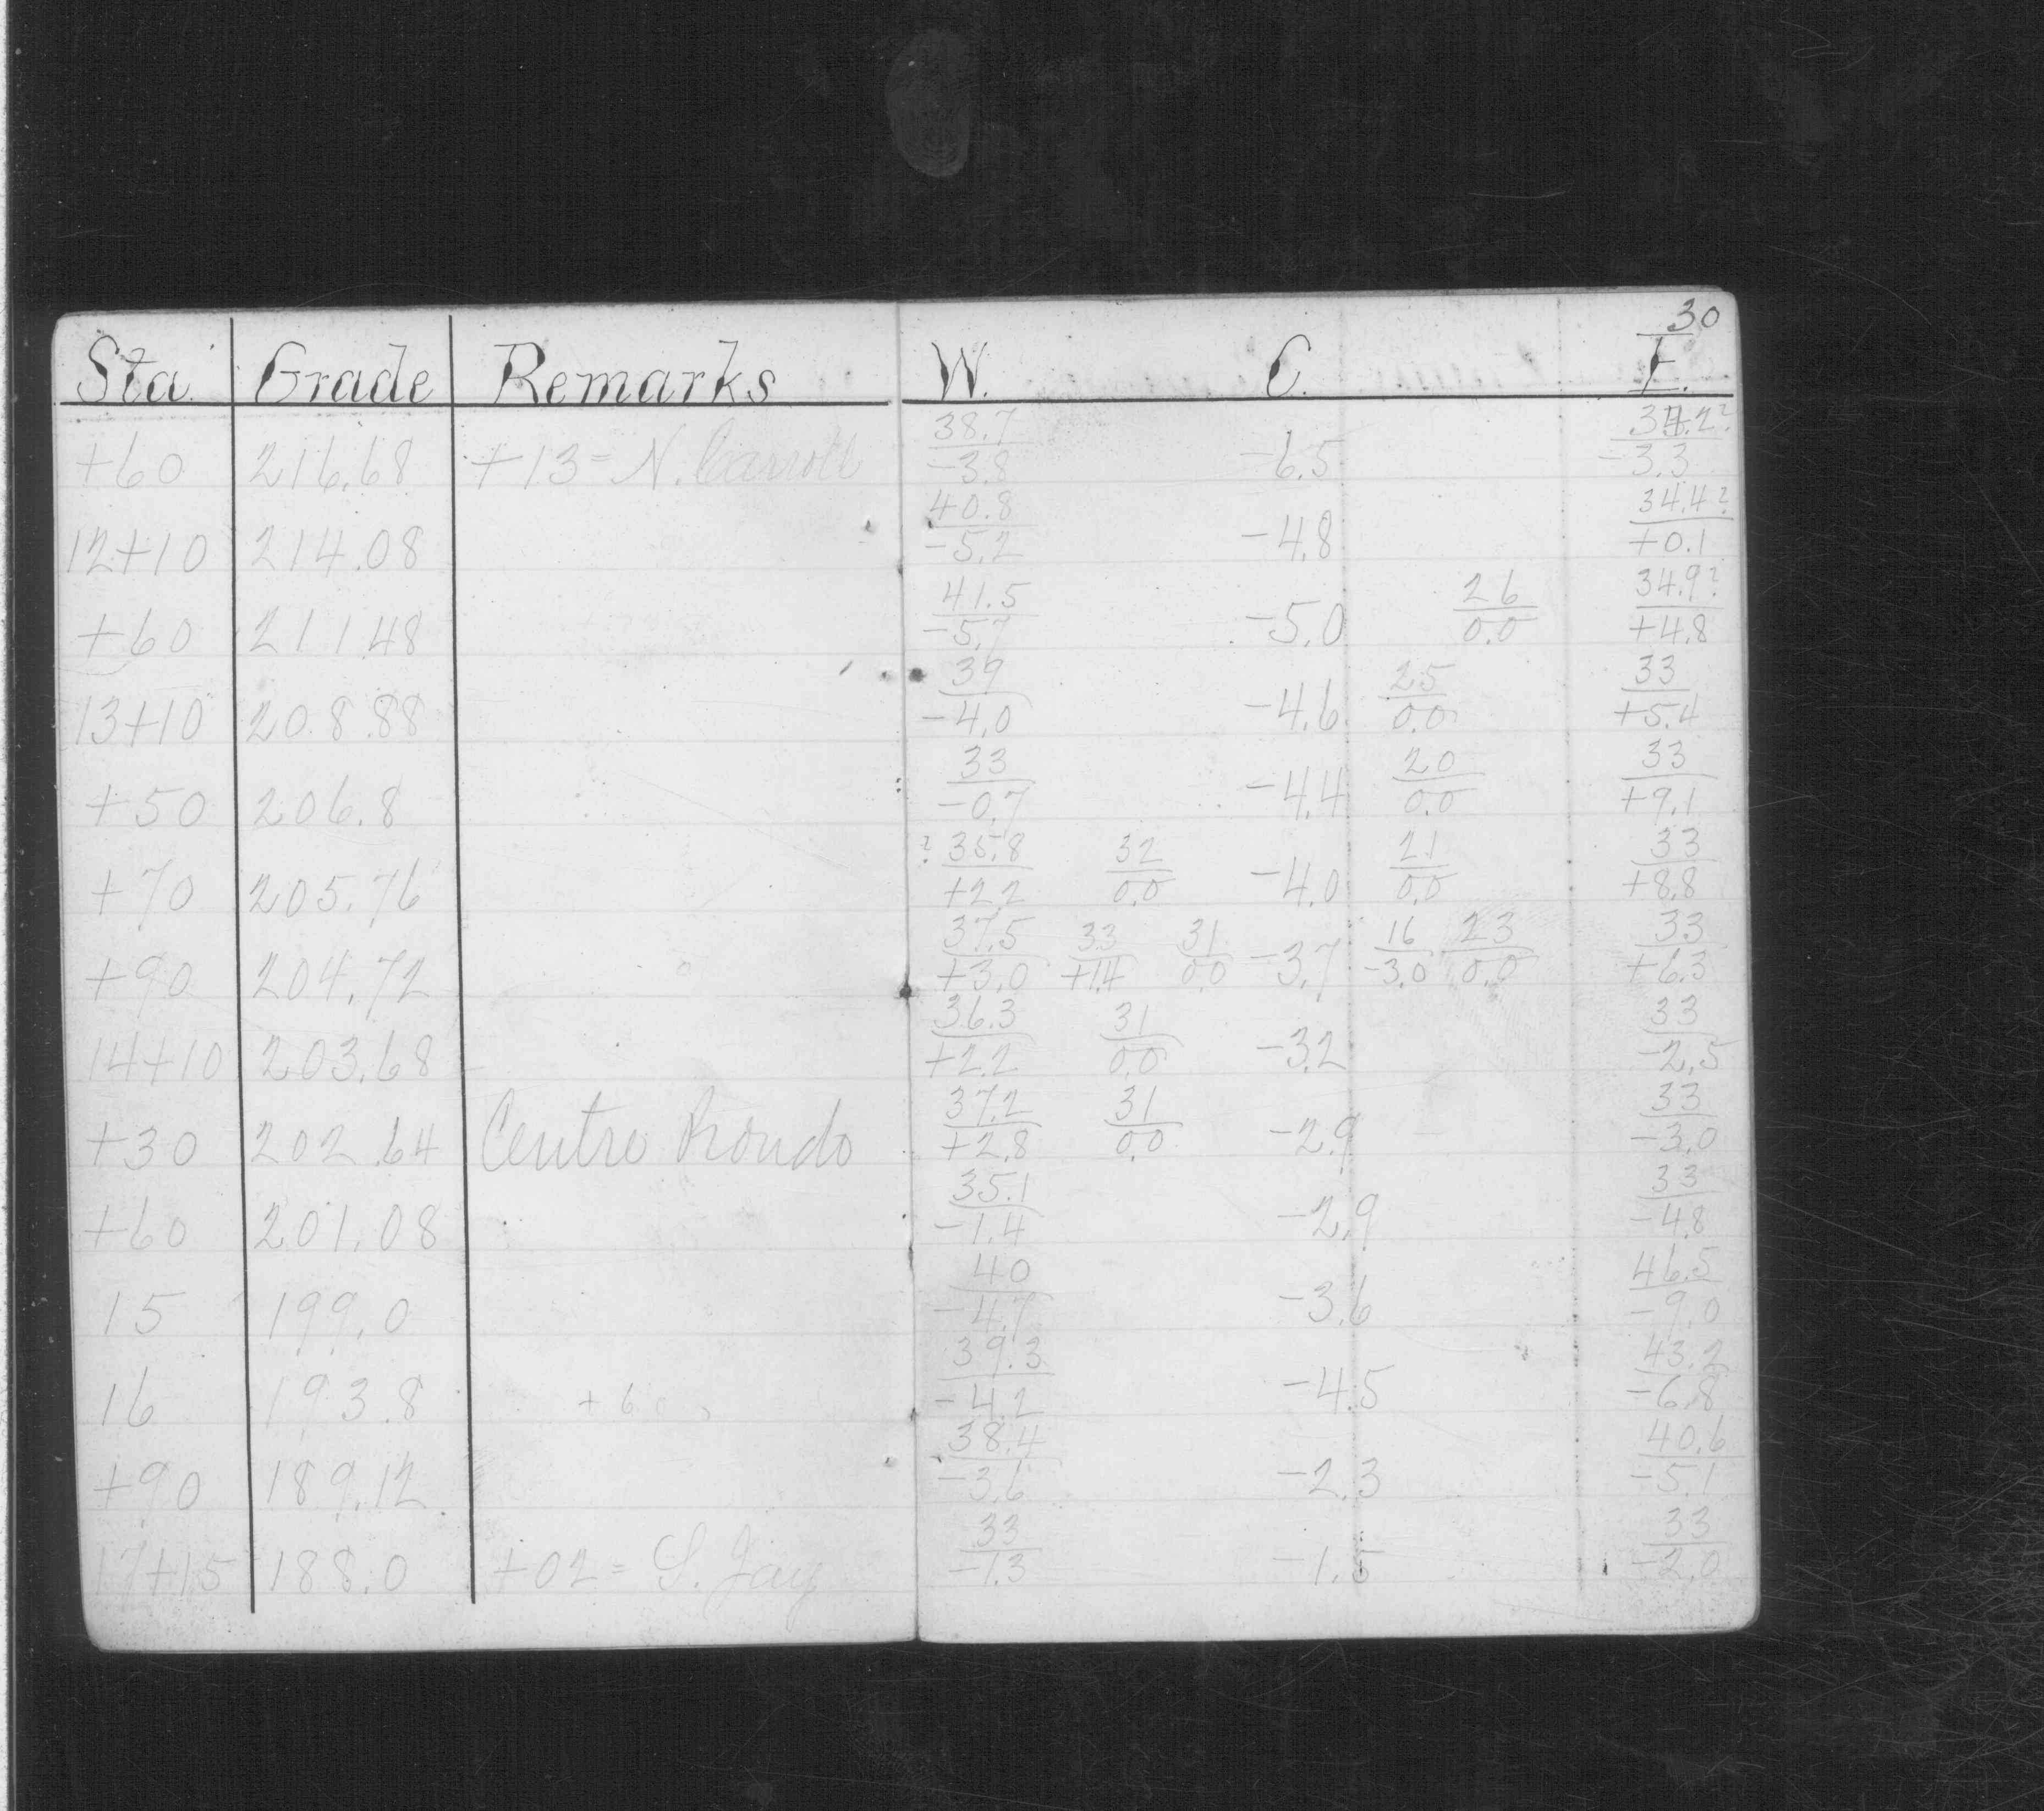 30
Sta. Grade Remarks W. C. E.
38.7 34.2?
+60 216.68 +13 = N. Carroll -3.8 -6.5 -3.3
40.8 34.4?
12+10 214.08 -5.2 -4.8 +0.1
41.5 26 34.9?
+60 211.48 -5.7 -5.0 0.0 +4.8
39 25 33
13+10 208.88 -4.0 -4.6 0.0 +5.4
33 20 33
+50 206.8 -0.7 -4.4 0.0 +9.1
? 35.8 32 21 33
+70 205.76 +2.2 0.0 -4.0 0.0 +8.8
37.5 33 31 16 23 33
+90 204.72 +3.0 +1.4 0.0 -3.7 -3.0 0.0 +6.3
36.3 31 33
14+10 203.68 +2.2 0.0 -3.2 -2.5
37.2 31 33
+30 202.64 Centre Rondo +2.8 0.0 -2.9 -3.0
35.1 33
+60 201.08 -1.4 -2.9 -4.8
40 46.5
15 199.0 -4.7 -3.6 -9.0
39.3 43.2
16 193.8 -4.2 -4.5 -6.8
38.4 40.6
+90 189.12 -3.6 -2.3 -5.1
33 33
17+15 188.0 +02 = S. Jay -1.3 -1.5 -2.0